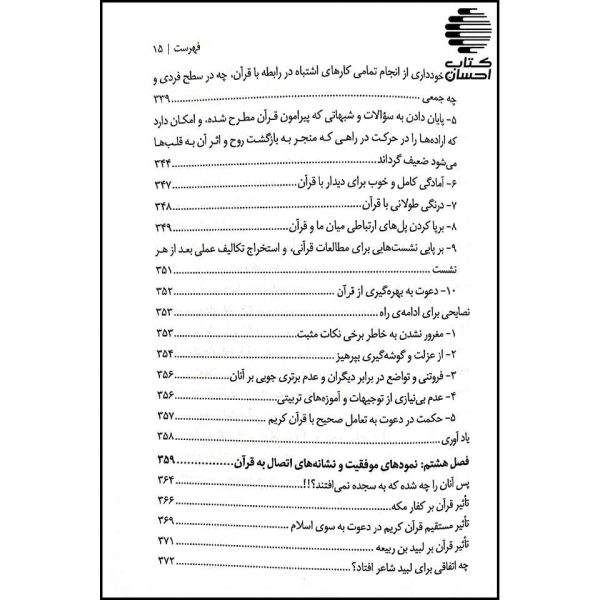 کتاب
احسان
فهرست | ۱۵
خودداری از انجام تمامی کارهای اشتباه در رابطه با قرآن، چه در سطح فردی و
چه جمعی ................ ۳۳۹
۵- پایان دادن به سؤالات و شبهاتی که پیرامون قرآن مطرح شده، و امکان دارد
که اراده‌ها را در حرکت در راهی که منجر به بازگشت روح و اثر آن به قلب‌ها
می‌شود ضعیف گرداند ................ ۳۴۴
۶- آمادگی کامل و خوب برای دیدار با قرآن ................ ۳۴۷
۷- درنگی طولانی با قرآن ................ ۳۴۸
۸- برپا کردن پل‌های ارتباطی میان ما و قرآن ................ ۳۴۹
۹- بر پایی نشست‌هایی برای مطالعات قرآنی، و استخراج تکالیف عملی بعد از هر
نشست ................ ۳۵۱
۱۰- دعوت به بهره‌گیری از قرآن ................ ۳۵۲
نصایحی برای ادامه‌ی راه ................ ۳۵۳
۱- مغرور نشدن به خاطر برخی نکات مثبت ................ ۳۵۳
۲- از عزلت و گوشه‌گیری بپرهیز ................ ۳۵۴
۳- فروتنی و تواضع در برابر دیگران و عدم برتری جویی بر آنان ................ ۳۵۶
۴- عدم بی‌نیازی از توجیهات و آموزه‌های تربیتی ................ ۳۵۶
۵- حکمت در دعوت به تعامل صحیح با قرآن کریم ................ ۳۵۷
یاد آوری ................ ۳۵۸
فصل هشتم: نمودهای موفقیت و نشانه‌های اتصال به قرآن ................ ۳۵۹
پس آنان را چه شده که به سجده نمی‌افتند؟!! ................ ۳۶۴
تأثیر قرآن بر کفار مکه ................ ۳۶۶
تأثیر مستقیم قرآن کریم در دعوت به سوی اسلام ................ ۳۶۹
تأثیر قرآن بر لبید بن ربیعه ................ ۳۷۱
چه اتفاقی برای لبید شاعر افتاد؟ ................ ۳۷۲